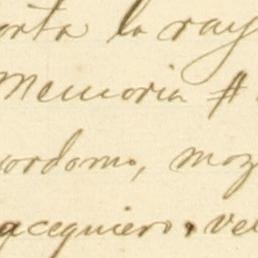 orta la ray
Memoria #
ordomo, moz
acequiero, vel